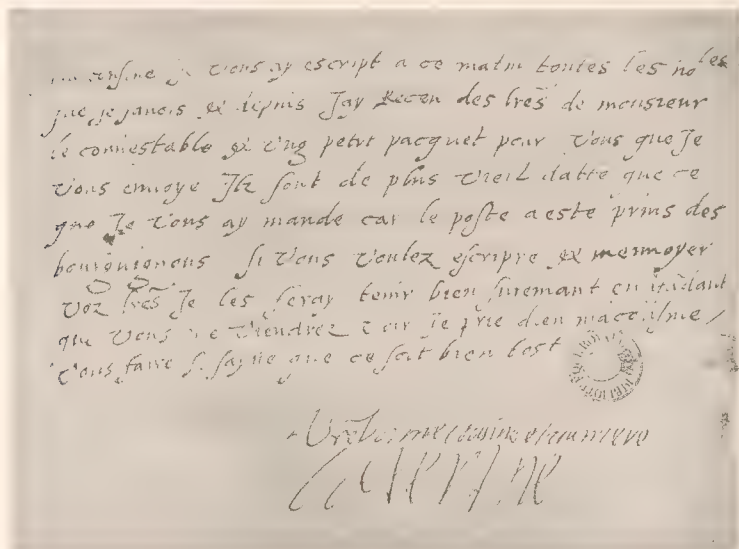 ma cusine je vous ay escript a ce matin toutes les no les
que je sauois & depuis Jay Receu des lrēs de monsieur
le connestable & vng petit pacquet pour vous que Je
vous enuoye Ilz sont de plus vieil datte que ce
que Je vous ay mande car le poste a este prins des
bourguignons si vous voulez escripre & menuoyer
voz lrēs Je les feray tenir bien surement en attādant
que vous me viendrez voir je prie dieu
vous faire se fayre que ce soit bien tost
Vrē bonne cousine
Caterine